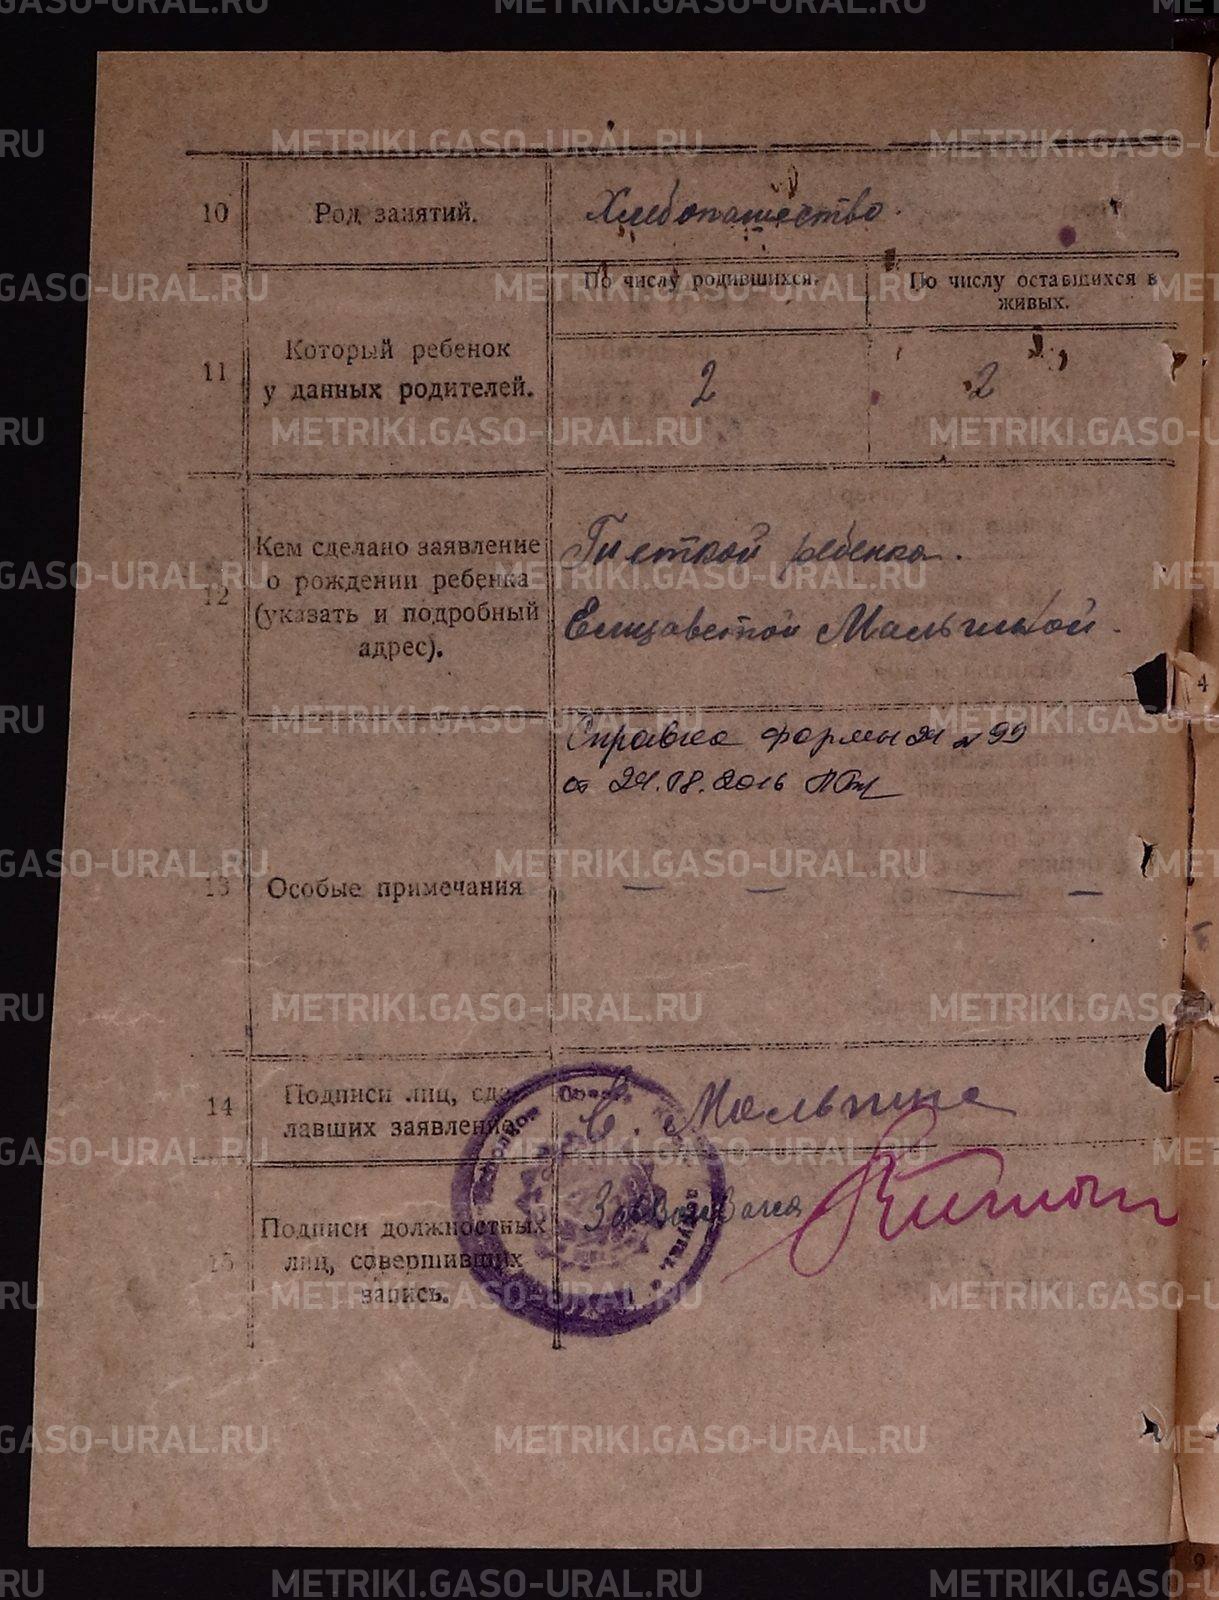 METRIKI.GASO-URAL.RU
10
Род занятий.
Хлебопашество.
11
Который ребенок
у данных родителей.
По числу родившихся.
По числу оставшихся в
живых.
2
2
12
Кем сделано заявление
о рождении ребенка
(указать и подробный
адрес).
ребенка.
Елизаветой
13
Особые примечания
Справка формы 24 № 99
от 24.08.2016
— — — —
14
Подписи лиц, сде-
лавших заявление.
Мальгина
15
Подписи должностных
лиц, совершивших
запись.
4